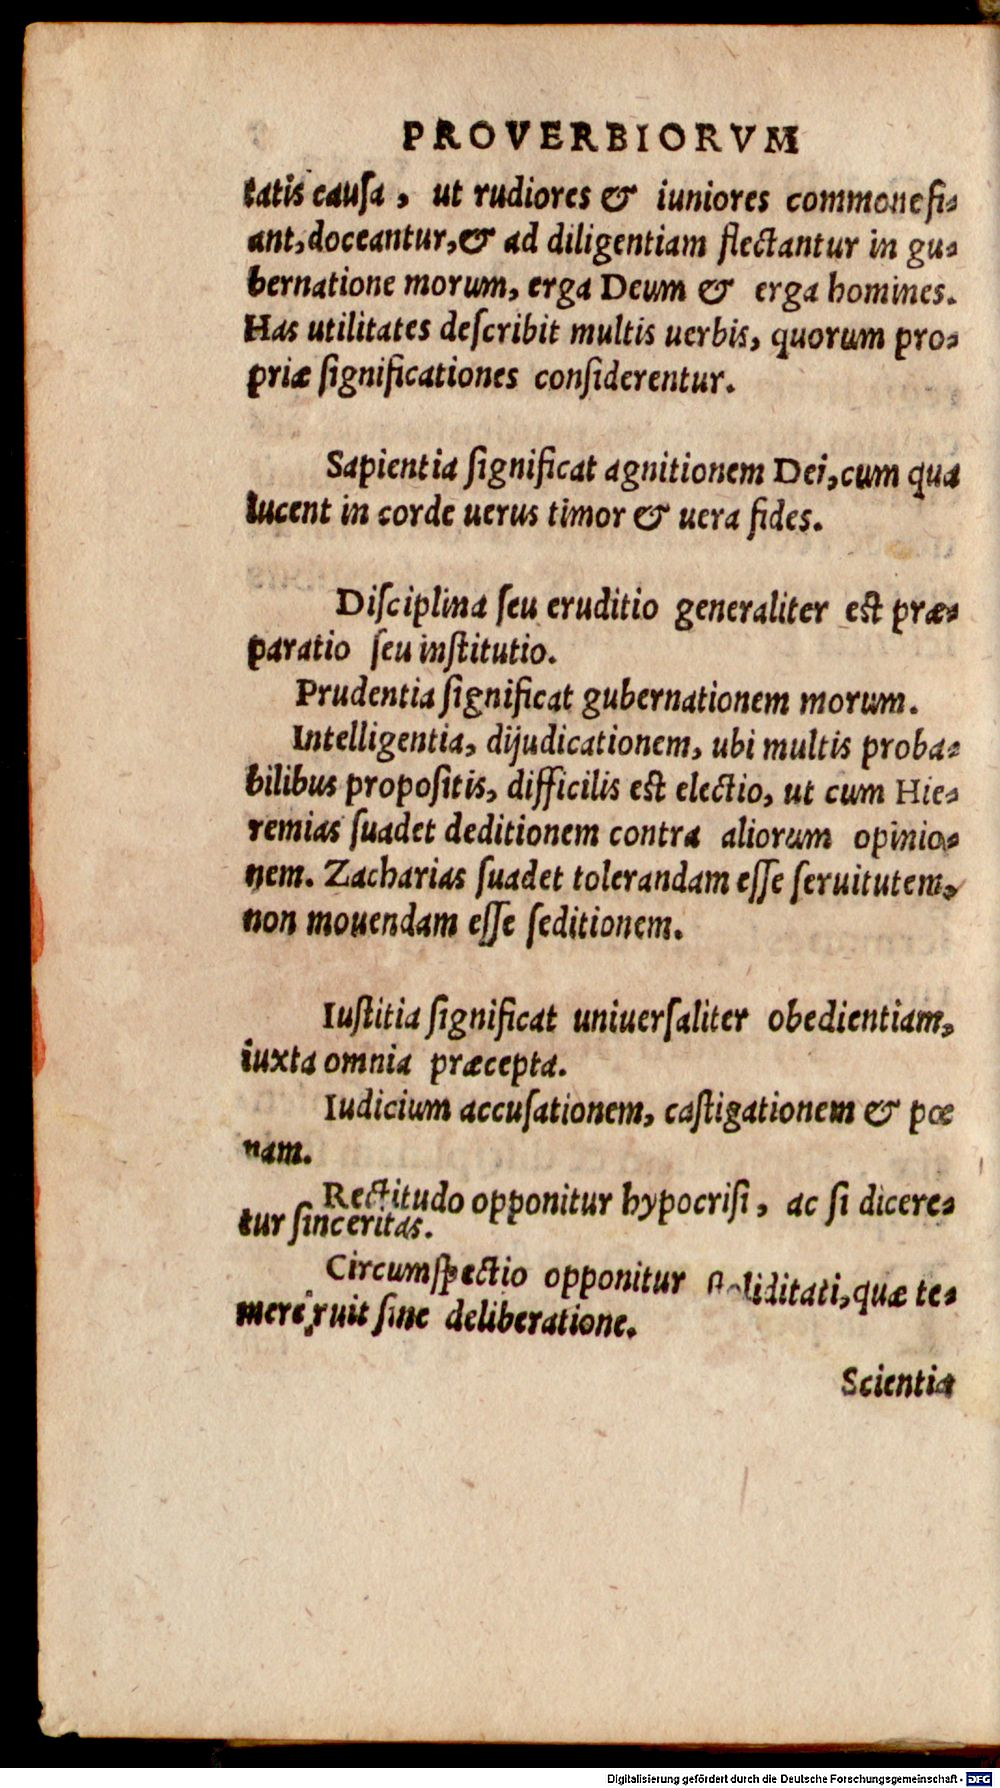 PROVERBIORVM
tatis cauſa, ut rudiores & iuniores commonefi⸗
ant, doceantur, & ad diligentiam flectantur in gu⸗
bernatione morum, erga Deum & erga homines.
Has utilitates deſcribit multis uerbis, quorum pro⸗
priæ ſignificationes conſiderentur.
Sapientia ſignificat agnitionem Dei, cum qua
lucent in corde uerus timor & uera fides.
Diſciplina ſeu eruditio generaliter est præ⸗
paratio ſeu inſtitutio.
Prudentia ſignificat gubernationem morum.
Intelligentia, dijudicationem, ubi multis proba⸗
bilibus propoſitis, difficilis est electio, ut cum Hie⸗
remias ſuadet deditionem contra aliorum opinio⸗
nem. Zacharias ſuadet tolerandam eſſe ſeruitutem,
non mouendam eſſe ſeditionem.
Iuſtitia ſignificat uniuerſaliter obedientiam,
iuxta omnia præcepta.
Iudicium accuſationem, caſtigationem & pœ
nam.
Rectitudo opponitur hypocriſi, ac ſi dicere⸗
tur ſinceritas.
Circumſpectio opponitur ſtoliditati, quæ te⸗
mere ruit ſine deliberatione.
Scientia
Digitalisierung gefördert durch die Deutsche Forschungsgemeinschaft - DFG